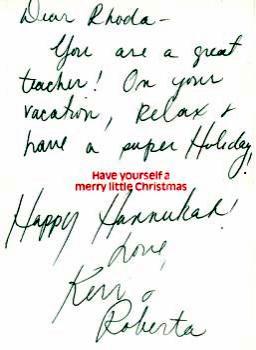 Dear Rhoda -
You are a great
teacher! On your
vacation, Relax &
have a super Holiday!
Have yourself a
merry little Christmas
Happy Hannukah!
Love,
Kerr &
Roberta